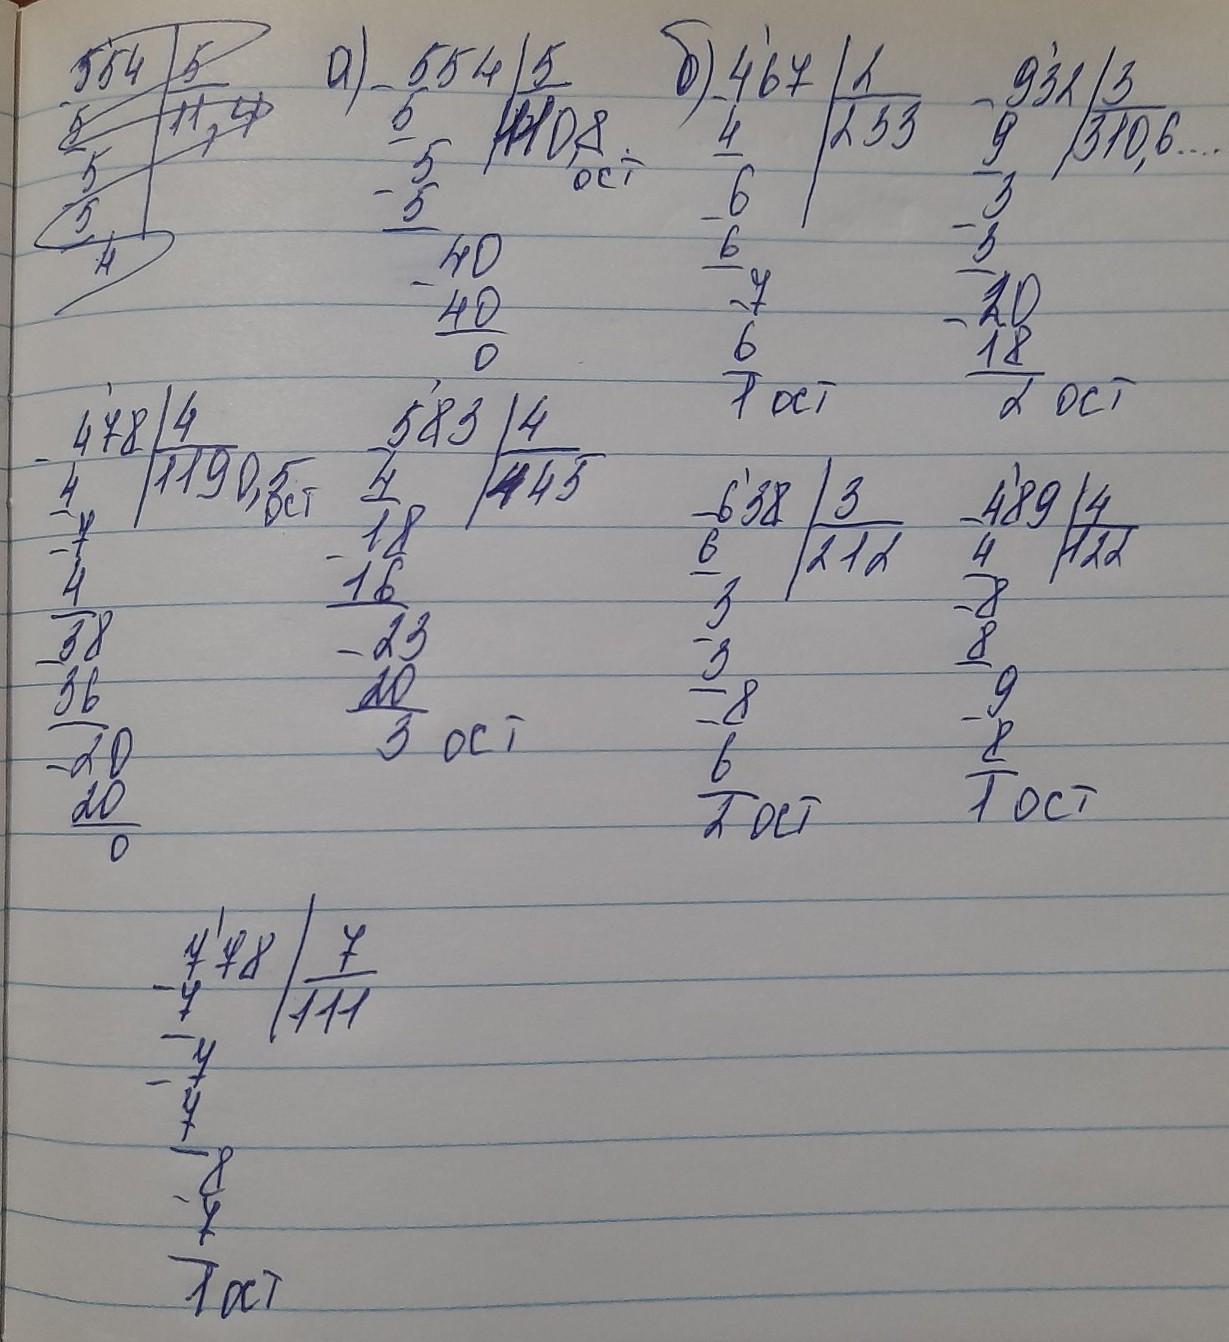 554 5
5 11,4
5
5
4
а) 554 5
5 110,8
5 ост
5
40
40
0
б) 467 2
4 233
6
6
7
6
1 ост
932 3
9 310,6....
3
3
20
18
2 ост
478 4
4 1190,5
7 ост
4
38
36
20
20
0
583 4
4 145
18
16
23
20
3 ост
638 3
6 212
3
3
8
6
2 ост
489 4
4 122
8
8
9
8
1 ост
778 7
7 111
7
7
8
7
1 ост